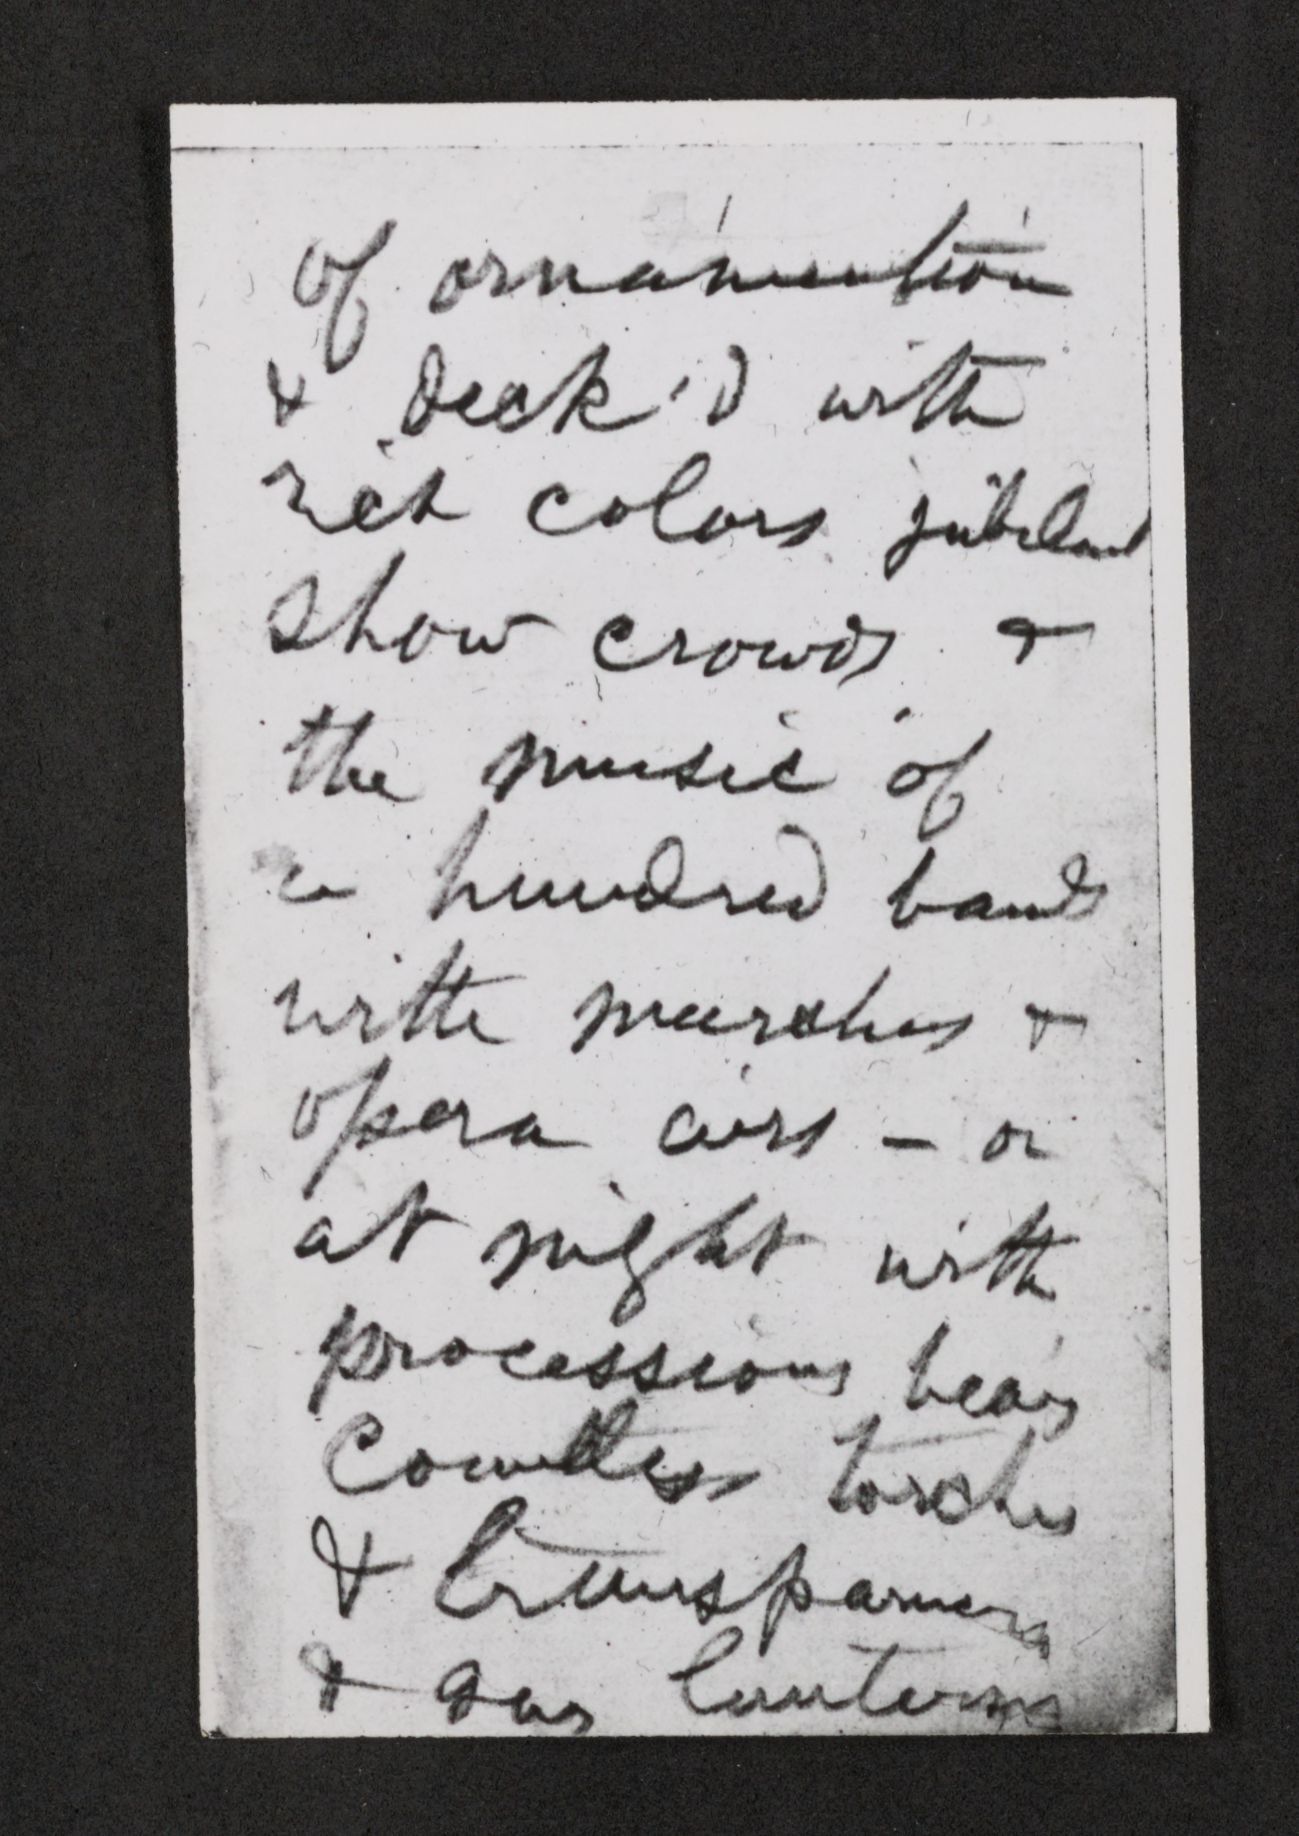 of ornamention
& deck'd with
rich colors jubilant
show crowds &
the music of
a hundred bands
with marches &
opera airs – or
at night with
processions bea'g
countless torches
& transparencs
& gas lanterns